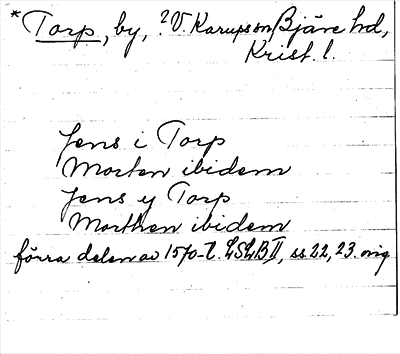 * Torp, by, ?V. Karups sn Bjäre hd,
Krist. l.
Jens i Torp
Morten ibidem
Jens y Torp
Morthen ibidem
förra delen av 1570-t. LSLB II, ss 22, 23. orig